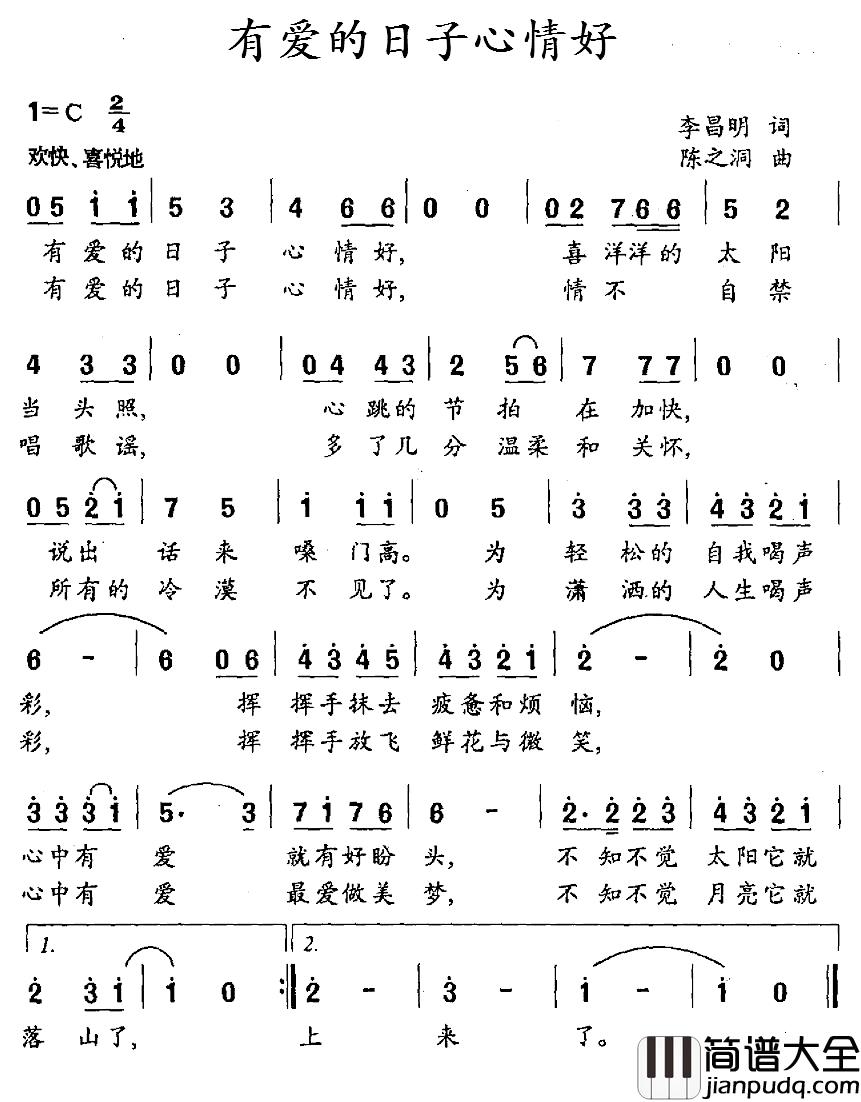 有爱的日子心情好
1=C 2/4
李昌明 词
欢快、喜悦地
陈之涧 曲
0 5 i i | 5 3 | 4 6 6 | 0 0 | 0 2 7 6 6 | 5 2
有爱的日子 心情好, 喜洋洋的太阳
有爱的日子 心情好, 情不 自禁
4 3 3 | 0 0 | 0 4 4 3 | 2 5 6 | 7 7 7 | 0 0 |
当头照, 心跳的节拍 在加快,
唱歌谣, 多了几分温柔和关怀,
0 5 2̇ i | 7 5 | i i i | 0 5 | 3̇ 3̇ 3̇ | 4̇ 3̇ 2̇ i |
说出 话来 嗓门高。 为 轻松的 自我喝声
所有的冷漠 不见了。 为 潇洒的 人生喝声
6 - | 6 0 6 | 4̇ 3̇ 4̇ 5̇ | 4̇ 3̇ 2̇ i | 2̇ - | 2̇ 0
彩, 挥 挥手抹去 疲惫和烦 恼,
彩, 挥 挥手放飞 鲜花与微 笑,
3̇ 3̇ 3̇ i | 5̇· 3̇ | 7 i 7 6 | 6 - | 2̇· 2̇ 2̇ 3̇ | 4̇ 3̇ 2̇ i
心中有 爱 就有好盼 头, 不知不觉 太阳它就
心中有 爱 最爱做美 梦, 不知不觉 月亮它就
1. 2.
2̇ 3̇ i | i 0 :| 2̇ - | 3̇ - | i - | i 0 ||
落山了, 上 来 了。
简谱大全
jianpudq.com